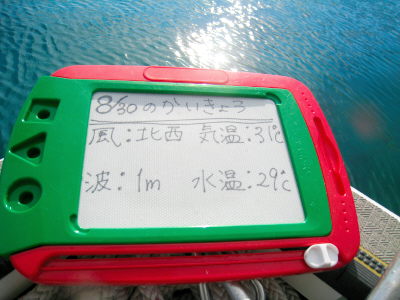 8/30 のかいきょう
風:北西 気温:31℃
波:1m 水温:29℃